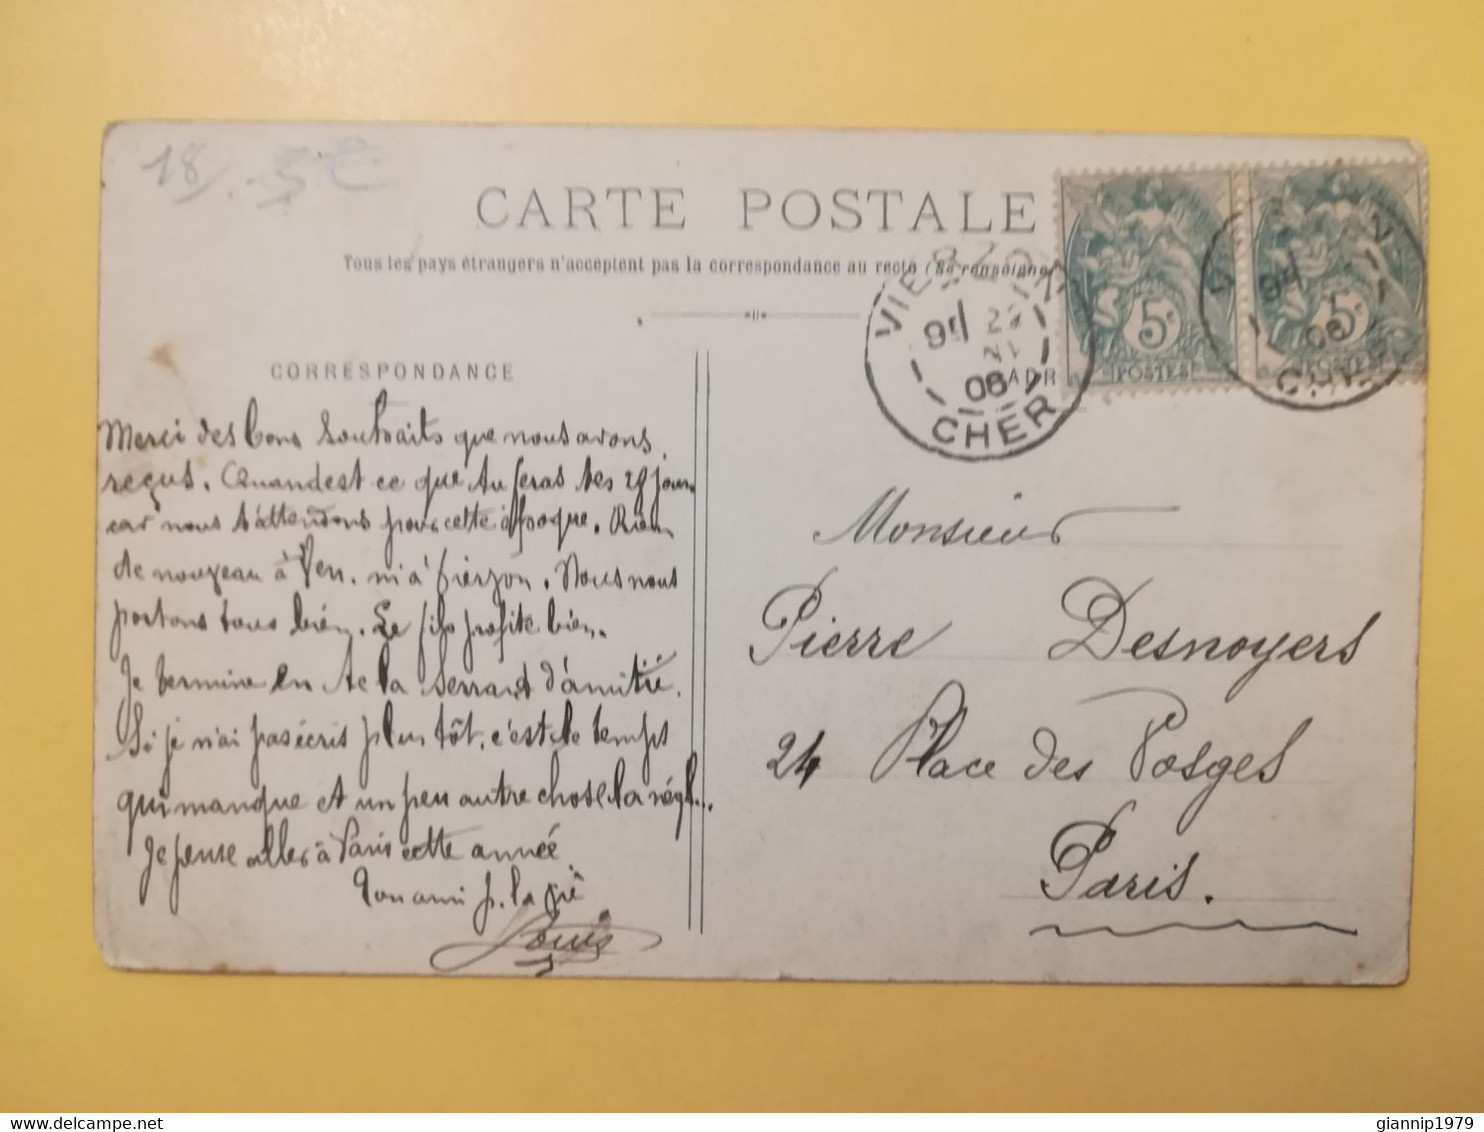 18/. 5€
CARTE POSTALE
Tous les pays étrangers n'acceptent pas la correspondance au recto (Se renseigne
CORRESPONDANCE
VIERZON
9h 22
NV
06
CHER
ADR
5c
POSTES
5c
POSTES
9h
06
CHER
Merci des bons souhaits que nous avons
reçus. Quandest ce que tu feras tes 28 jours
car nous t'attendons pour cette époque. Rien
de nouveau à Ven. ni à Vierzon. Nous nous
portons tous bien. Le fils profite bien.
Je termine en te la serrant d'amitié.
Si je n'ai pas écris plus tôt, c'est le temps
qui manque et un peu autre chose la régl...
Je pense aller à Paris cette année
Ton ami p. la vie
Louis
Monsieur
Pierre Desnoyers
24 Place des Vosges
Paris.
giannip1979